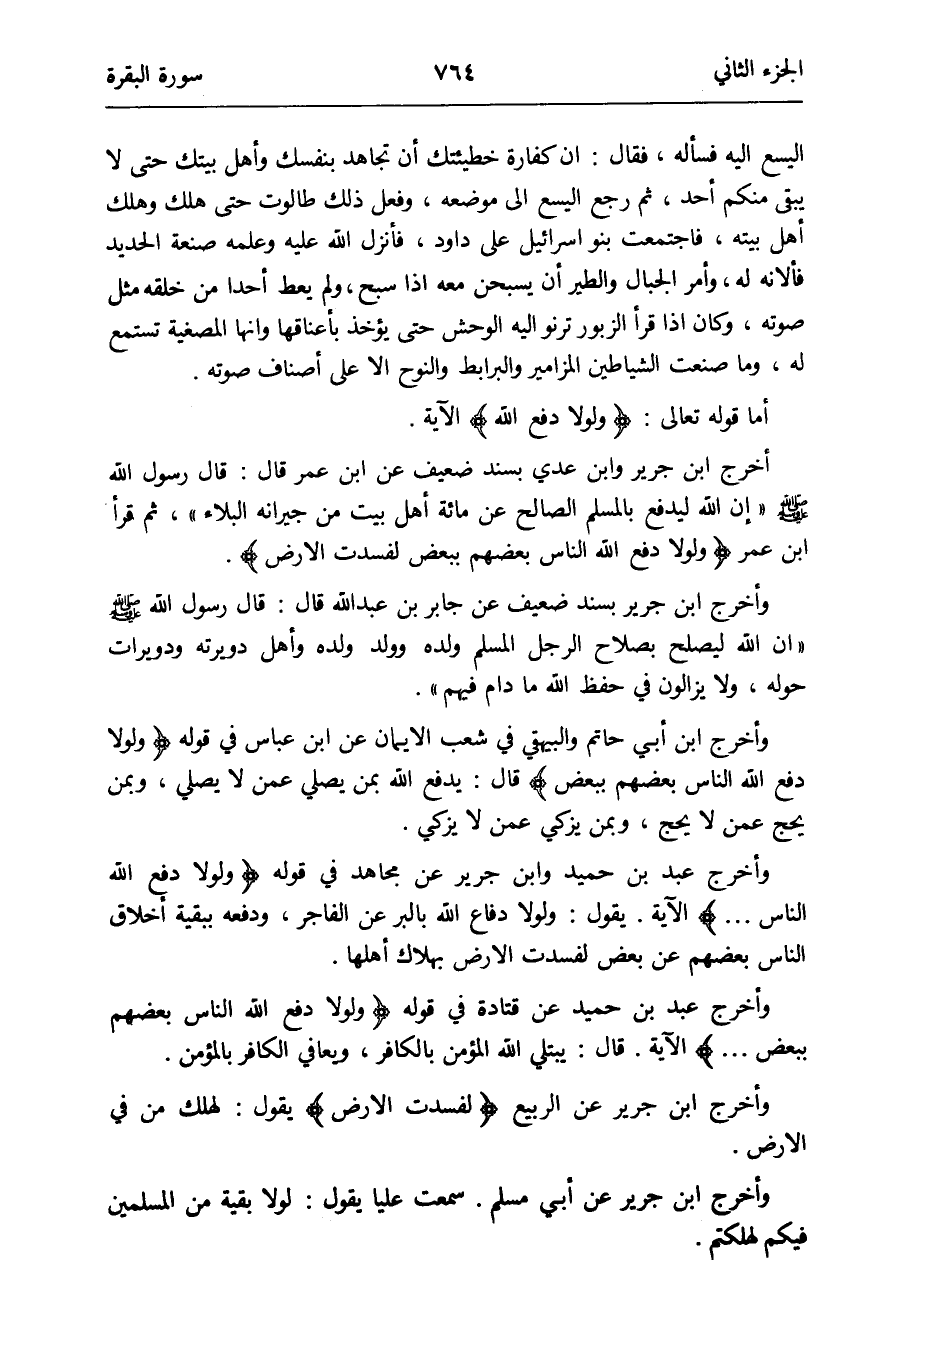 الجزء الثاني ٧٦٤ سورة البقرة
اليسع اليه فسأله ، فقال : ان كفارة خطيئتك أن تجاهد بنفسك وأهل بيتك حتى لا
يبقى منكم أحد ، ثم رجع اليسع الى موضعه ، وفعل ذلك طالوت حتى هلك وهلك
أهل بيته ، فاجتمعت بنو اسرائيل على داود ، فأنزل الله عليه وعلمه صنعة الحديد
فألانه له ، وأمر الجبال والطير أن يسبحن معه اذا سبح ، ولم يعط أحدا من خلقه مثل
صوته ، وكان اذا قرأ الزبور ترنو اليه الوحش حتى يؤخذ بأعناقها وانها المصغية تستمع
له ، وما صنعت الشياطين المزامير والبرابط والنوح الا على أصناف صوته .
أما قوله تعالى : ﴿ ولولا دفع الله ﴾ الآية .
أخرج ابن جرير وابن عدي بسند ضعيف عن ابن عمر قال : قال رسول الله
ﷺ « إن الله ليدفع بالمسلم الصالح عن مائة أهل بيت من جيرانه البلاء » ، ثم قرأ
ابن عمر ﴿ ولولا دفع الله الناس بعضهم ببعض لفسدت الارض ﴾ .
وأخرج ابن جرير بسند ضعيف عن جابر بن عبدالله قال : قال رسول الله ﷺ
« ان الله ليصلح بصلاح الرجل المسلم ولده وولد ولده وأهل دويرته ودويرات
حوله ، ولا يزالون في حفظ الله ما دام فيهم » .
وأخرج ابن أبي حاتم والبيهقي في شعب الايمان عن ابن عباس في قوله ﴿ ولولا
دفع الله الناس بعضهم ببعض ﴾ قال : يدفع الله بمن يصلي عمن لا يصلي ، وبمن
يحج عمن لا يحج ، وبمن يزكي عمن لا يزكي .
وأخرج عبد بن حميد وابن جرير عن مجاهد في قوله ﴿ ولولا دفع الله
الناس ... ﴾ الآية . يقول : ولولا دفاع الله بالبر عن الفاجر ، ودفعه ببقية أخلاق
الناس بعضهم عن بعض لفسدت الارض بهلاك أهلها .
وأخرج عبد بن حميد عن قتادة في قوله ﴿ ولولا دفع الله الناس بعضهم
ببعض ... ﴾ الآية . قال : يبتلي الله المؤمن بالكافر ، ويعافي الكافر بالمؤمن .
وأخرج ابن جرير عن الربيع ﴿ لفسدت الارض ﴾ يقول : لهلك من في
الارض .
وأخرج ابن جرير عن أبي مسلم . سمعت عليا يقول : لولا بقية من المسلمين
فيكم لهلكتم .